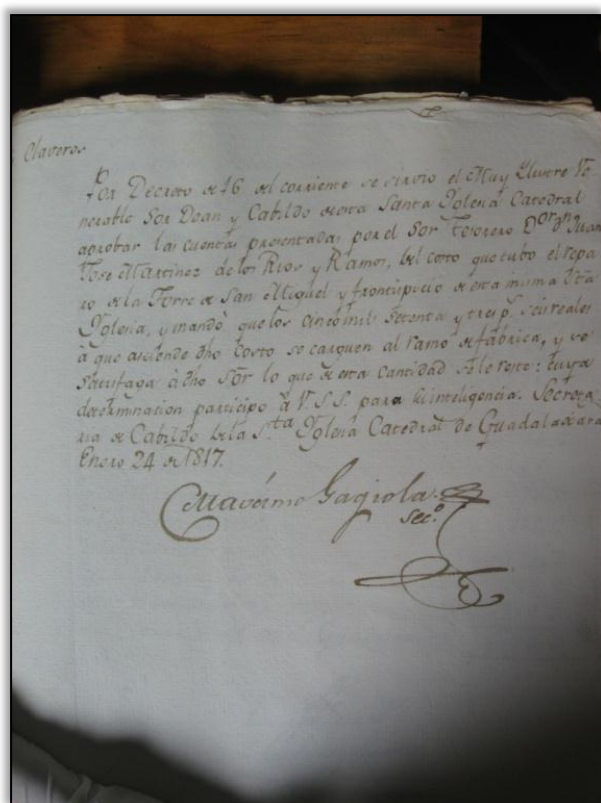 Claveros
Por Decreto de 16 del corriente se sirvio el Muy Ylustre Ve
nerable Sor Dean y Cabildo de esta Santa Yglesia Catedral
aprobar las cuentas presentadas por el Sor Tesorero D.or Dn Juan
Jose Martinez de los Rios y Ramos, del costo que tubo el repa
ro de la Torre de San Miguel y frontispicio de esta misma Sta
Yglesia, y mandó que los cinco mil setenta y tres p.s seis reales
à que asciende dho costo se carguen al ramo de fabrica, y se
satisfaga à dho Sor lo que de esta cantidad se le reste: cuya
determinacion participo à V.S.S. para su inteligencia. Secreta
ria de Cabildo de la S.ta Yglesia Catedral de Guadalaxara
Enero 24 de 1817.
Maximo Gagiola
sec.o